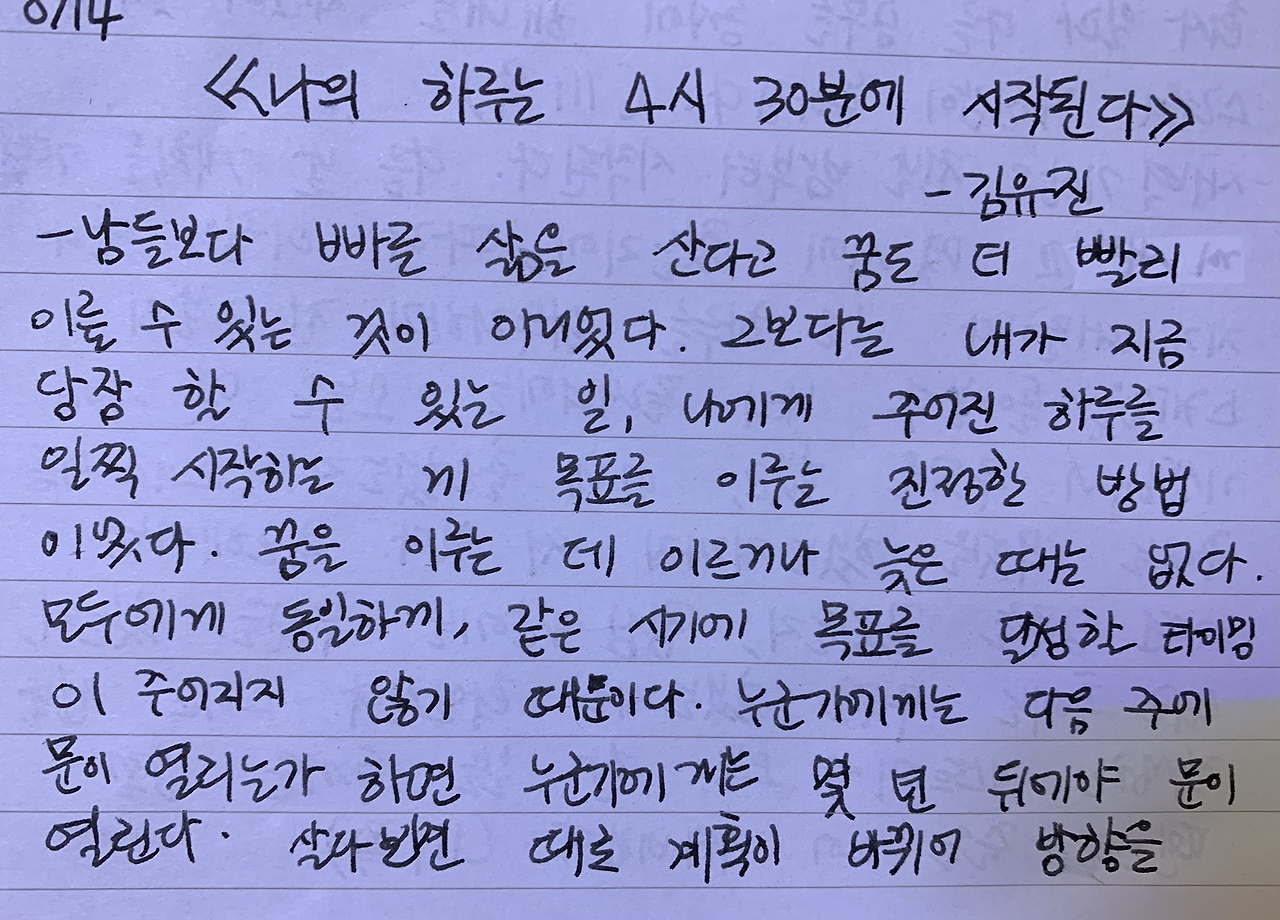 8/14
《나의 하루는 4시 30분에 시작된다》
- 김유진
- 남들보다 빠를 삶을 산다고 꿈도 더 빨리
이룰 수 있는 것이 아니었다. 그보다는 내가 지금
당장 할 수 있는 일, 나에게 주어진 하루를
일찍 시작하는 게 목표를 이루는 진정한 방법
이었다. 꿈을 이루는 데 이르거나 늦은 때는 없다.
모두에게 동일하게, 같은 시기에 목표를 달성할 타이밍
이 주어지지 않기 때문이다. 누군가에게는 다음 주에
문이 열리는가 하면 누군가에게는 몇 년 뒤에야 문이
열린다. 살다보면 때로 계획이 바뀌어 방향을